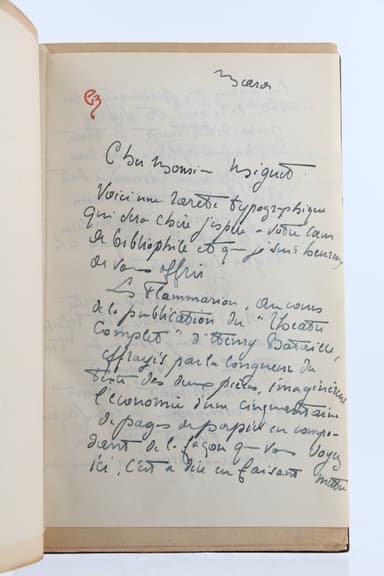 Cher Monsieur Miguet.
Voici une rareté typographique
qui sera chère j'espère à votre cœur
de bibliophile et que je suis heureux
de vous offrir
Les Flammarion, au cours
de la publication du "Théâtre
Complet" d'Henry Bataille,
effrayés par la longueur du
texte des deux pièces, imaginèrent
l'économie d'une cinquantaine
de pages de papier en compo-
sant de la façon que vous voyez
ici, c'est à dire en faisant mettre